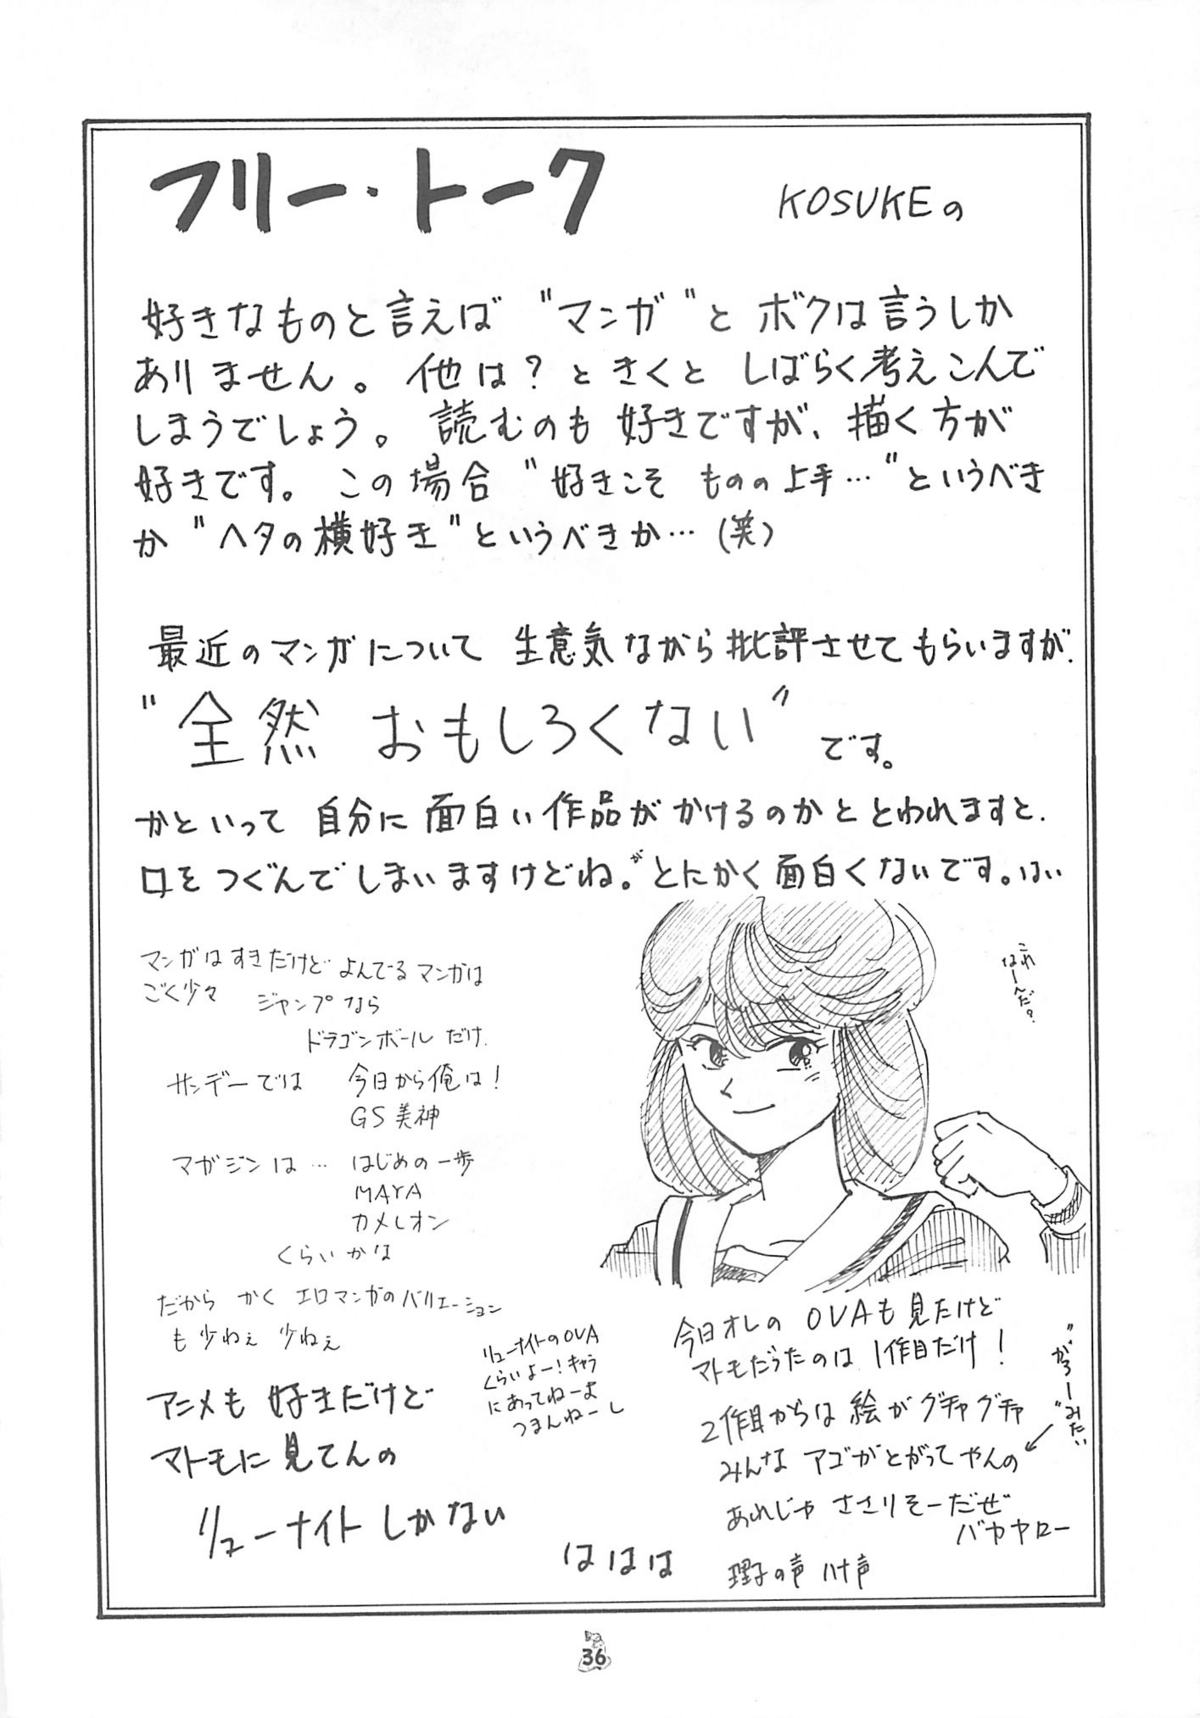 フリー・トーク
KOSUKEの
好きなものと言えば "マンガ" と ボクは言うしか
ありません。他は?ときくと しばらく考えこんで
しまうでしょう。読むのも 好きですが、描く方が
好きです。この場合 "好きこそ ものの上手…" というべき
か "ヘタの横好き" というべきか…(笑)
最近のマンガについて 生意気ながら批評させてもらいますが、
"全然 おもしろくない" です。
かといって 自分に 面白い作品が かけるのかと とわれますと、
口をつぐんでしまいますけどね。が とにかく面白くないです。はい
マンガはすきだけど よんでるマンガは
ごく少々 ジャンプなら
ドラゴンボールだけ
サンデーでは 今日から俺は!
GS美神
マガジンは … はじめの一歩
MAYA
カメレオン
くらいかな
だから かく エロマンガのバリエーション
も 少ねぇ 少ねぇ
アニメも 好きだけど
マトモに 見てんの
リューナイト しかない
ははは
リューナイトのOVA
くらいよー!キャラ
にあってねーよ
つまんねーし
これ
なーんだ?
今日オレの OVAも見たけど
マトモだったのは 1作目だけ!
2作目からは 絵がグチャグチャ
みんな アゴがとがってやんの
"がろーみたい"
あれじゃ ささりそーだぜ
バカヤロー
理子の声 ハナ声
36